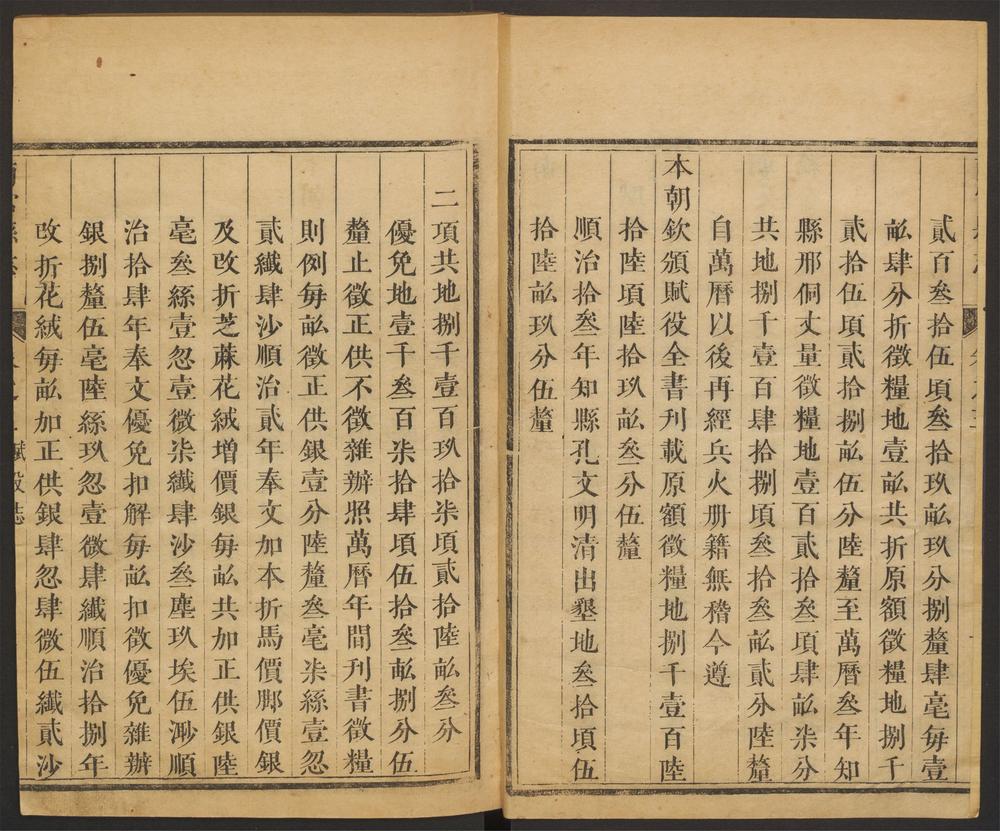 貳百叁拾伍頃叁拾玖畝玖分捌釐肆毫每壹
畝肆分折徵糧地壹畝共折原額徵糧地捌千
貳拾伍項貳拾捌畝伍分陸釐至萬曆叁年知
縣邢侗丈量徵糧地壹百貳拾叁項肆畝柒分
共地捌千壹百肆拾捌頃叁拾叁畝貳分陸釐
自萬曆以後再經兵火册籍無稽今遵
本朝欽頒賦役全書刊載原額徵糧地捌千壹百陸
拾陸頃陸拾玖畝叁分伍釐
順治拾叁年知縣孔文明清出墾地叁拾頃伍
拾陸畝玖分伍釐
二項共地捌千壹百玖拾柒頃貳拾陸畝叁分
優免地壹千叁百柒拾肆頃伍拾叁畝捌分伍
釐止徵正供不徵雜辦照萬曆年間刊書徵糧
則例每畝徵正供銀壹分陸釐叁毫柒絲壹忽
貳纖肆沙順治貳年奉文加本折馬價脚價銀
及改折芝蔴花絨增價銀每畝共加正供銀陸
毫叁絲壹忽壹微柒纖肆沙叁塵玖埃伍渺順
治拾肆年奉文優免扣解每畝扣徵優免雜辦
銀捌釐伍毫陸絲玖忽壹微肆纖順治拾捌年
改折花絨每畝加正供銀肆忽肆微伍纖貳沙
賦役誌